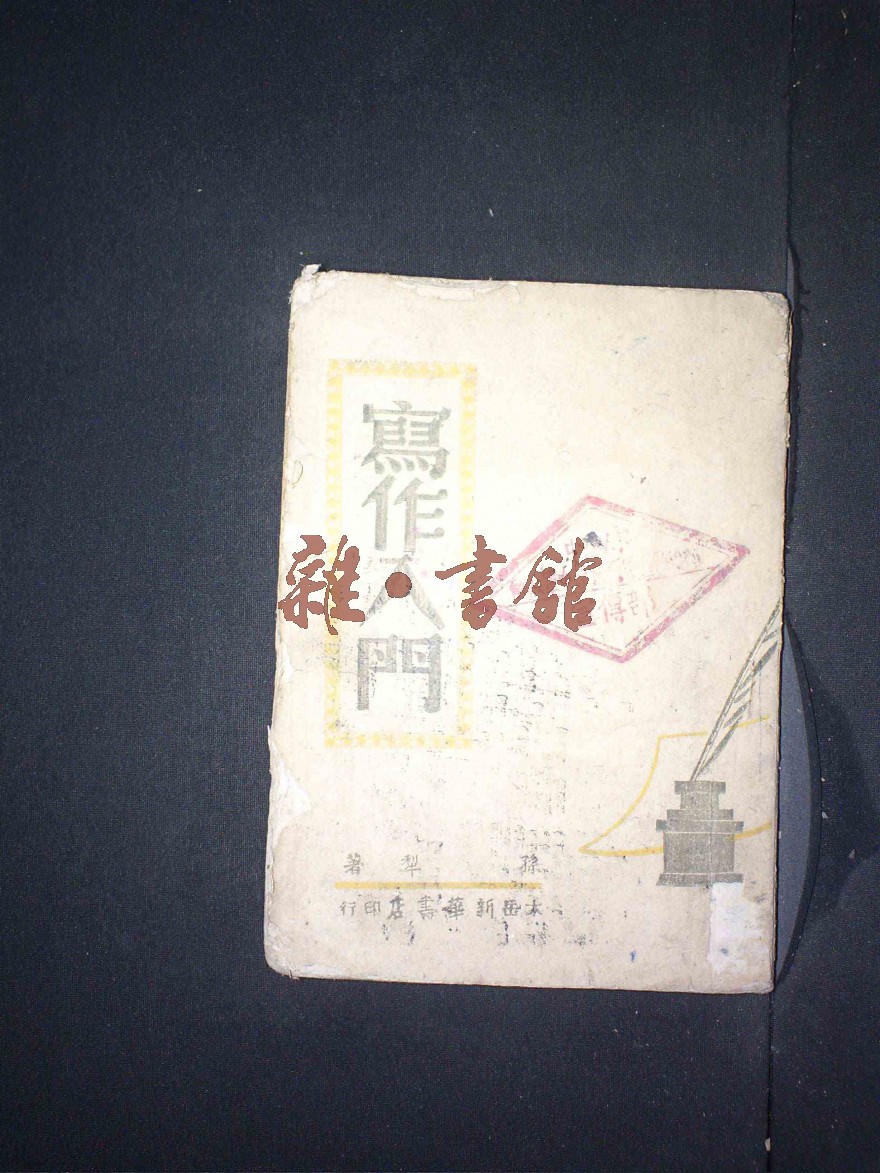 寫作入門
雜·書館
孫犁著
太岳新華書店印行